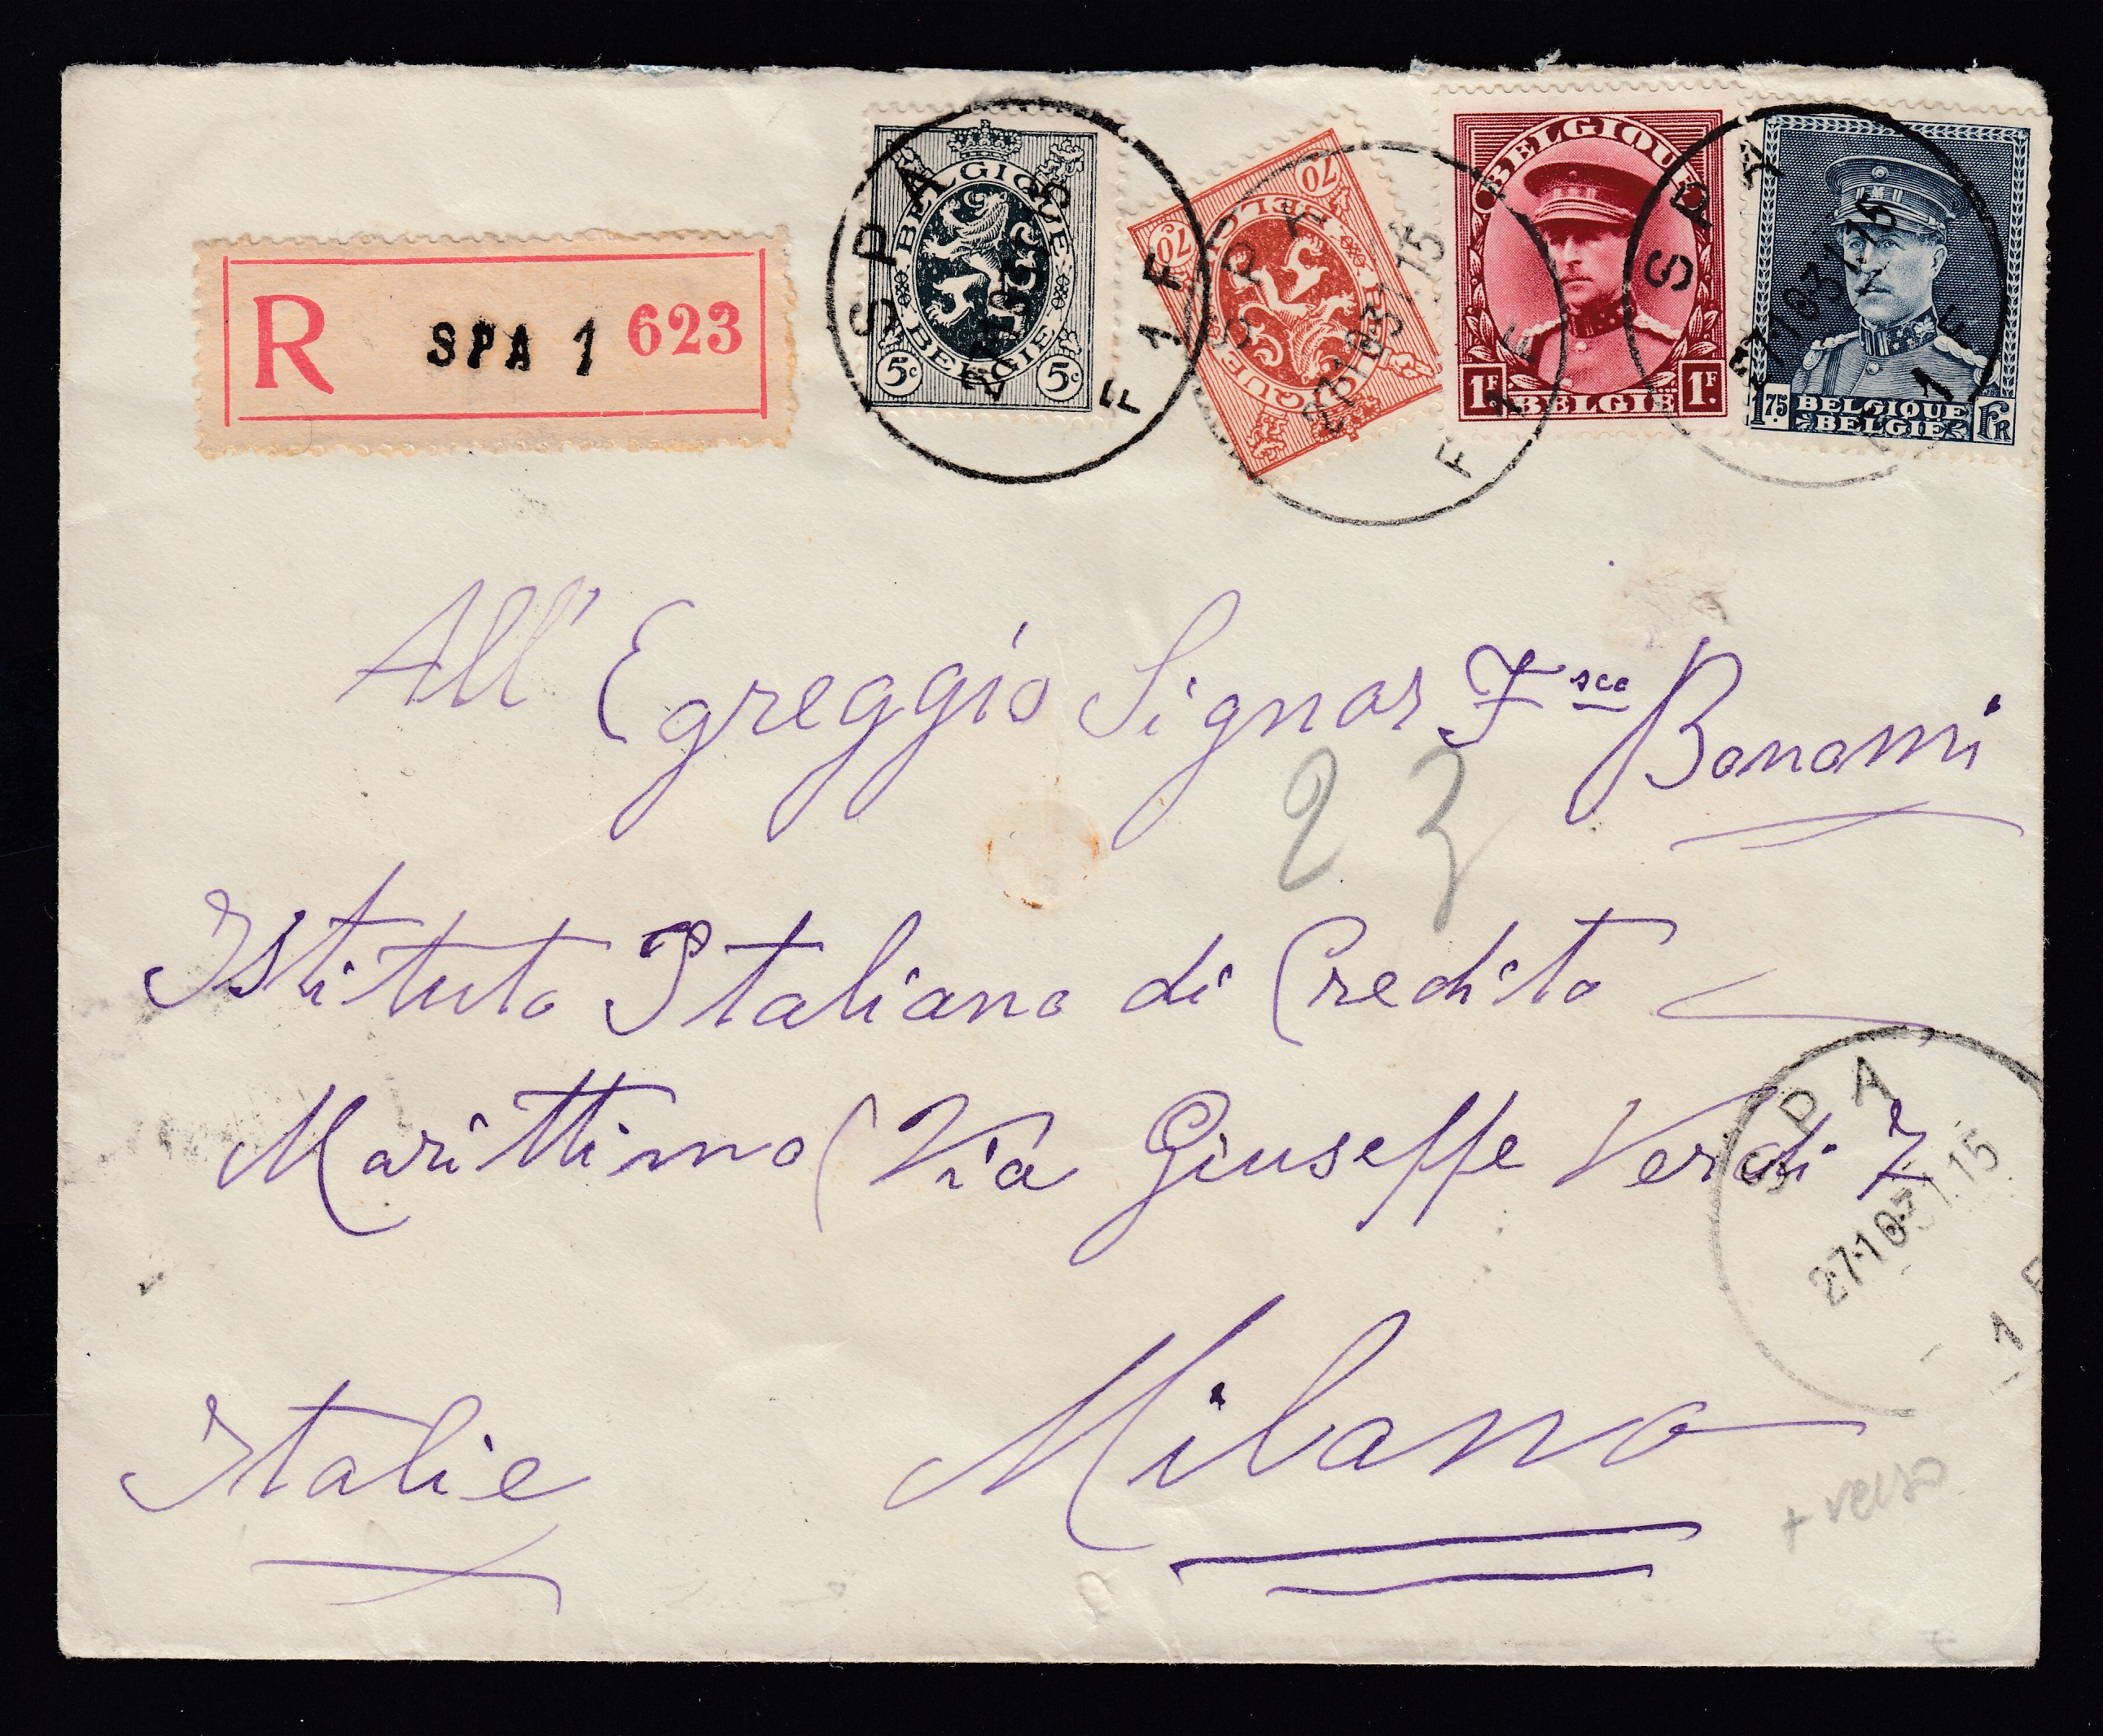 R SPA 1 623
SPA
1 F
F
BELGIQUE
BELGIE
5c 5c
SPA
1 F
F
70 70
BELGIQUE
BELGIE
1F 1F
SPA
1
1.75 BELGIQUE FR
BELGIE
All' Egreggio Signor Fsco Bonomi
23
Istituto Italiano di Credito
Marittimo (Via Giuseppe Verdi 7
SPA
27·10 31.15
1 F
Italie Milano
+ verso